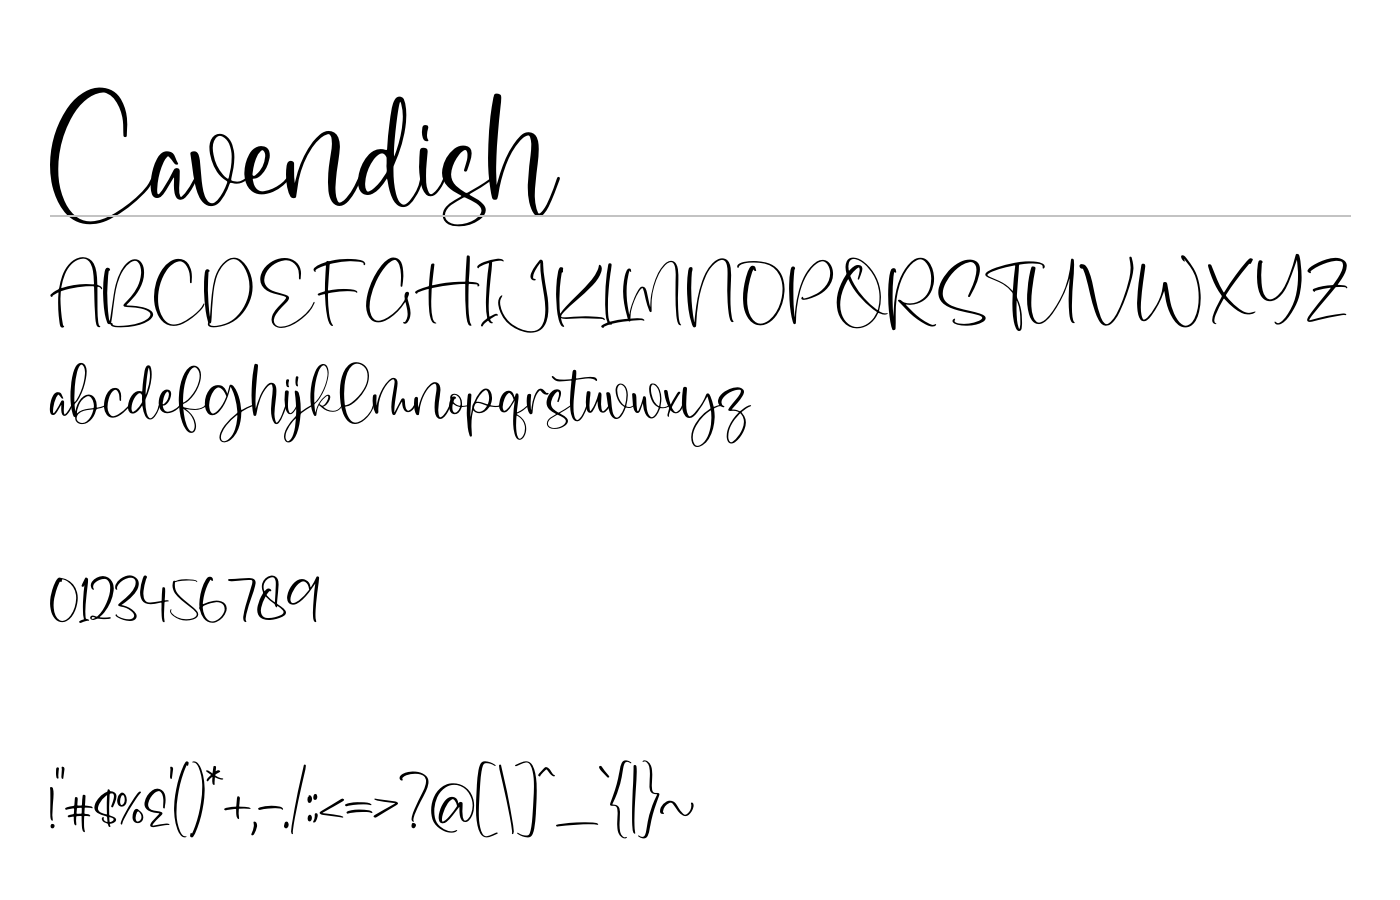 Cavendish
ABCDEFGHIJKLMNOPQRSTUVWXYZ
abcdefghijklmnopqrstuvwxyz
0123456789
!"#$%&'()*+,-./:;<=>?@[\]^_`{|}~